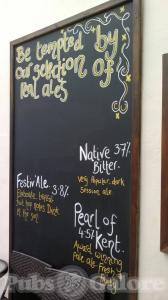 Be tempted by
our selection of
real ales
Native 3.7%
Bitter.
very popular, dark
session ale
Festiv'Ale 3.8%
Pearl of
Kent.
4.5%
Award winning
Pale ale. Fresh
Pubs Galore